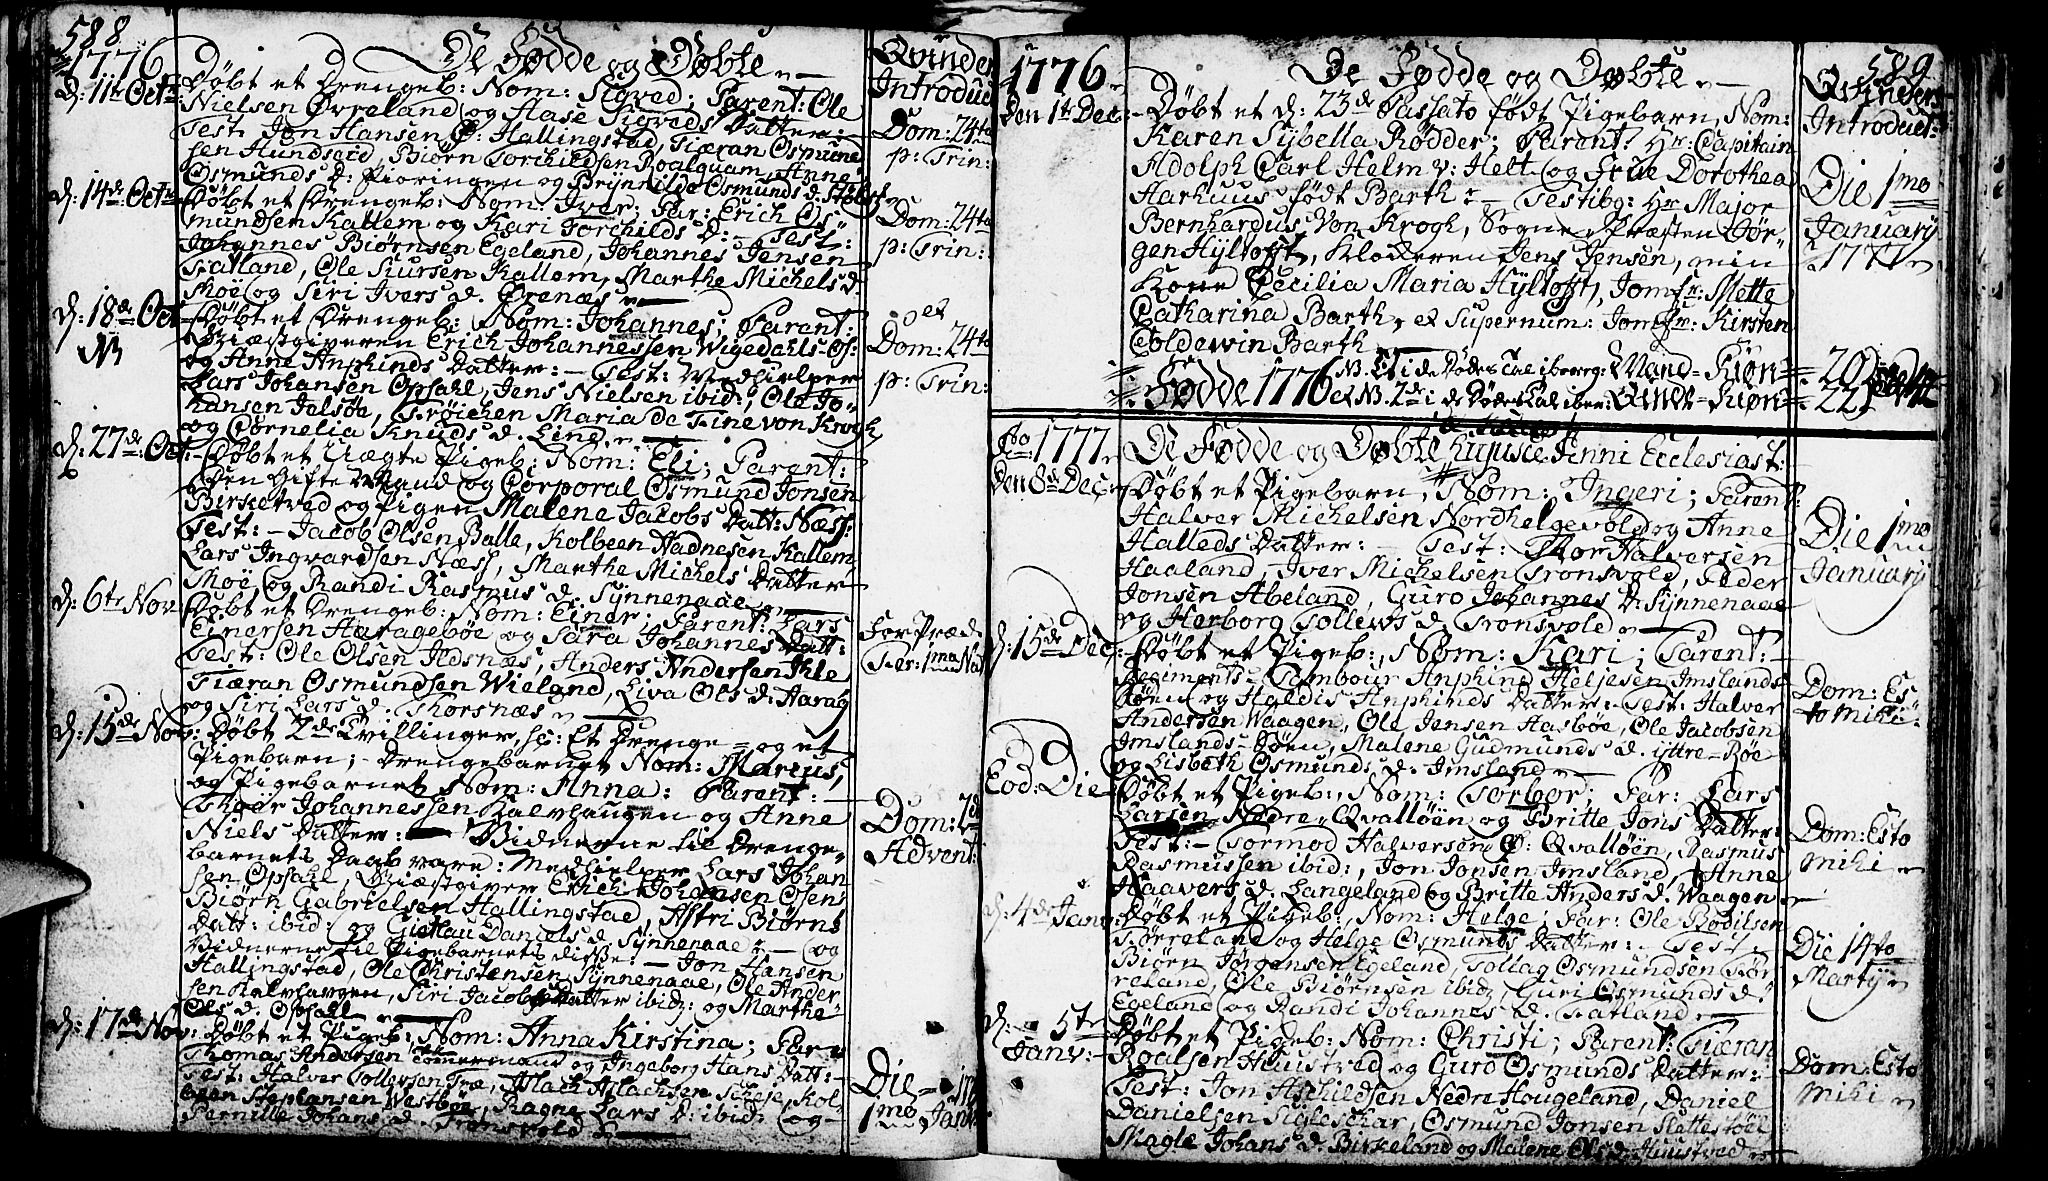 588
1776
De Fødde og Døbte
Qvinder
Introduct
d: 11te Octr
Døbt et Drengeb: Nom: Sigved; Parent: Ole
Nielsen Øvreland og Hase Sigveds Datter:
Test: Jon Hansen Hallingstad, Tiæran Osmund
sen Hundseid, Biørn Torchildsen Roalquam, Anne
Osmunds d: Fioringen og Brynnilde Osmunds d.
Dom: 24ta
p: Trin:
d: 14de Octr
Døbt et Drengeb: Nom: Iver; Par: Erich Os-
mundsen Kallem og Kari Torchilds d: Test:
Johannes Biørnsen Egeland, Johannes Jensen
Tatland, Ole Kursen Kallem, Marthe Michels d.
Moe og Siri Ivers d. Evenæs
Dom: 24ta
p: Trin:
d: 18de Oct
Døbt et Drengeb: Nom: Johannes; Parent:
Giæstgiveren Erich Johannessen Wigedahls-Os:
og Anne Anphinds Datter: Test: Medhielper
Lars Johansen Opsahl, Jens Nielsen ibid:, Ole Jo-
hansen Jelsøe, Frøichen Maria de Fine von Krogh
og Cornelia Knuds d. Line,
et
Dom: 24ta
p: Trin:
d: 27de Oct:
Døbt et Uægte Pigeb: Nom: Eli; Parent:
Den Gifte Mand og Corporal Osmund Jonsen
Birketved og Pigen Malene Jacobs Datt: Næss:
Test: Jacob Olsen Balle, Kolbeen Nadnesen Kallem
Lars Ingvardsen Næss, Marthe Michels Datter
Moe, og Randi Rasmus d: Synnenaae
d: 6te Nov:
Døbt et Drengeb: Nom: Einer; Parent: Lars
Einersen Haragebøe og Sara Johannes Datt:
Test: Ole Olsen Ildsnæs, Anders Andersen Ihle
Tiæran Osmundsen Wieland, Liva Ols d: Harag
og Siri Lars d. Thorsnæs
d: 15de Nov:
Døbt 2de Tvillinger, sc: Et Drenge= og et
Pigebarn; Drengebarnet Nom: Marcus,
og Pigebarnet Nom: Anna: Parent:
Thoer Johannessen Kalvhaugen og Anne
Niels Datter: Vidnerne til Drenge-
barnets Daab vare: Medhielper Lars Johan
sen Opsahl, Giæstgiver Erich Johansen Osen
Biørn Gabrielsen Hallingstad, Astri Biørns
Datt: ibid: og Gietlau Daniels d. Synnenaae: og
Vidnerne til Pigebarnets disse: Jon Hansen
Hallingstad, Ole Christensen Synnenaae, Ole Ander
sen Kalvhaugen, Siri Jacobs Datter ibid: og Marthe
Ols d. Opsahl
Dom: 2da
Advent:
d: 17de Nov:
Døbt et Pigeb: Nom: Anna Kirstina; Par:
Thomas Andersen Tømermand og Ingeborg Hans Datt:
Test: Halver Tollevsen Træ, Aslach Aslachsen Scheje, Kol-
been Stephansen Westbøe, Ragne Lars d: ibid: og
Pernille Johans d. Tronsvold
Die
1mo Janu
589
1776
De Fødde og Døbte
Qvinders
Introduct:
Den 1te Dec:
Døbt et d: 23de Passato født Pigebarn, Nom:
Karen Sybella Rødder; Parent: Hr: Capitain
Adolph Carl Helm v: Helt og Frue Dorothea
Harhuus født Barth: Testibg: Hr Major
Bernhardus Von Krogh, Sogne Præsten Jør-
gen Hyltofft, Kloderen Jens Jensen, min
Kone Cecilia Maria Hyltofft, Jomfr: Mette
Catharina Barth, et Supernum: Jomfr: Kirsten
Coldewin Barth
Die 1mo
January
1777
Fødde 1776
Mand-Kiøn 20
Qvinde-Kiøn 22
Ao 1777
De Fødde og Døbte hujusce Anni Ecclesiast:
Den 8de Dec:
Døbt et Pigebarn, Nom: Ingeri; Parent:
Halver Michelsen Nordhelgevold og Anne
Halleds Datter: Test: Thor Halversen
Haaland, Iver Michelsen Tronsvold, Peder
Jonsen Abeland, Guro Johannes d: Synnenaae
og Herborg Tollevs d. Tronsvold
Die 1mo
January
d: 15de Dec:
Døbt et Pigeb:, Nom: Kari; Parent:
Regiments-Tambour Anphind Heljesen Imslands-
Søen og Haldis Anphinds Datter: Test: Halver
Andersen Waagen, Ole Jensen Hasbøe, Ole Jacobsen
Imslands-Søen, Malene Gudmunds d. yttre-Røe
og Lisbeth Osmunds d. Imsland
Dom: Es
to Mihi
Eod: Die
Døbt et Pigeb:, Nom: Torbor; Par: Lars
Larsen Nedre-Qvalløen og Britte Jons Datter:
Test: Tormod Halversen Ø: Qvalløen, Rasmus
Rasmussen ibid:, Jon Jonsen Imsland, Anne
Haavers d. Langeland og Britte Anders d. Waagen
Dom: Esto
mihi
d: 4de Janv:
Døbt et Pigeb:, Nom: Helge; Par: Ole Bodilsen
Tørreland og Helge Osmunds Datter: Test:
Biørn Jørgensen Egeland, Tollag Osmundsen Tør
reland, Ole Biørnsen ibid:, Guri Osmunds d.
Egeland og Randi Johannes d. Tatland
Die 14to
Martij
d: 5te
Janv:
Døbt et Pigeb: Nom: Christi; Parent: Tiæran
Roalsen Huustved og Guro Osmunds Datter:
Test: Jon Aschildsen Nedre Hougeland, Daniel
Danielsen Sigleschar, Osmund Jonsen Slettestøel
Magle Johans d. Birkeland og Malene Ols d. Huustved
Dom: Esto
mihi